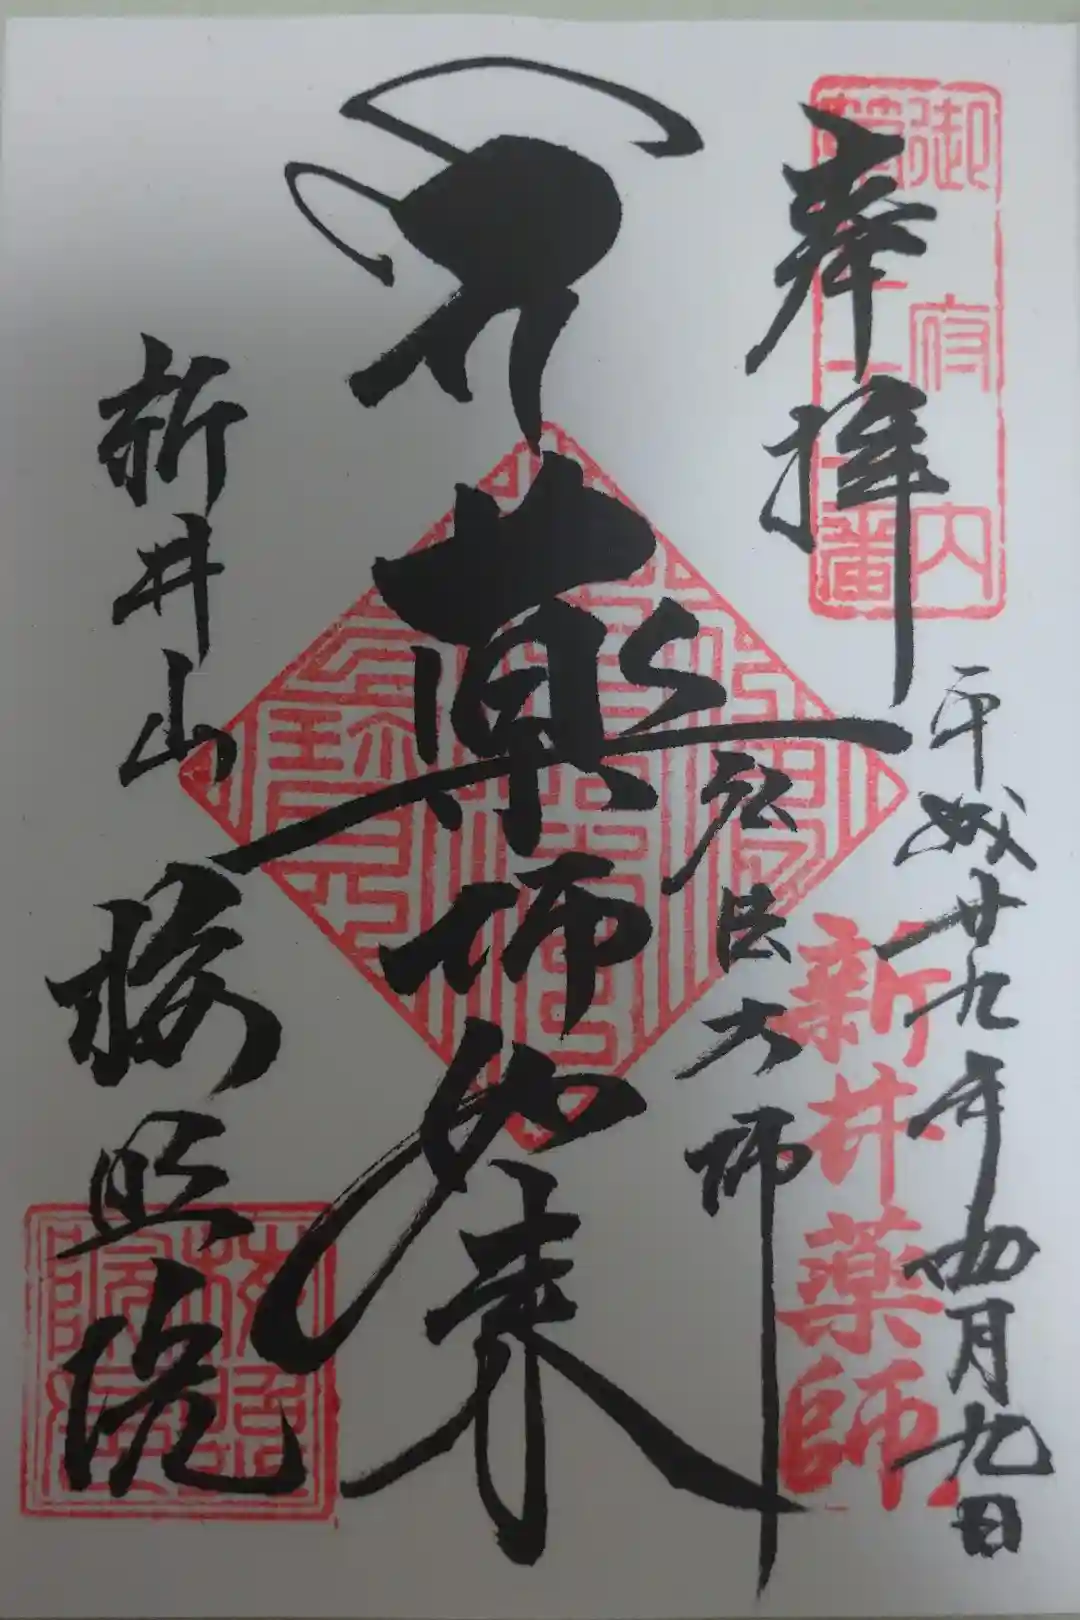 奉拝
御府内
第七十一番
平成廿九年四月九日
新井薬師
弘法大師
薬師如来
新井山
梅照院